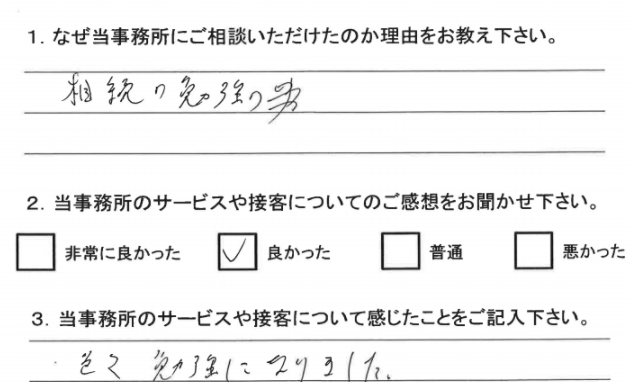 1. なぜ当事務所にご相談いただけたのか理由をお教え下さい。
相続の勉強の為
2. 当事務所のサービスや接客についてのご感想をお聞かせ下さい。
非常に良かった 良かった 普通 悪かった
3. 当事務所のサービスや接客について感じたことをご記入下さい。
・色々勉強になりました。